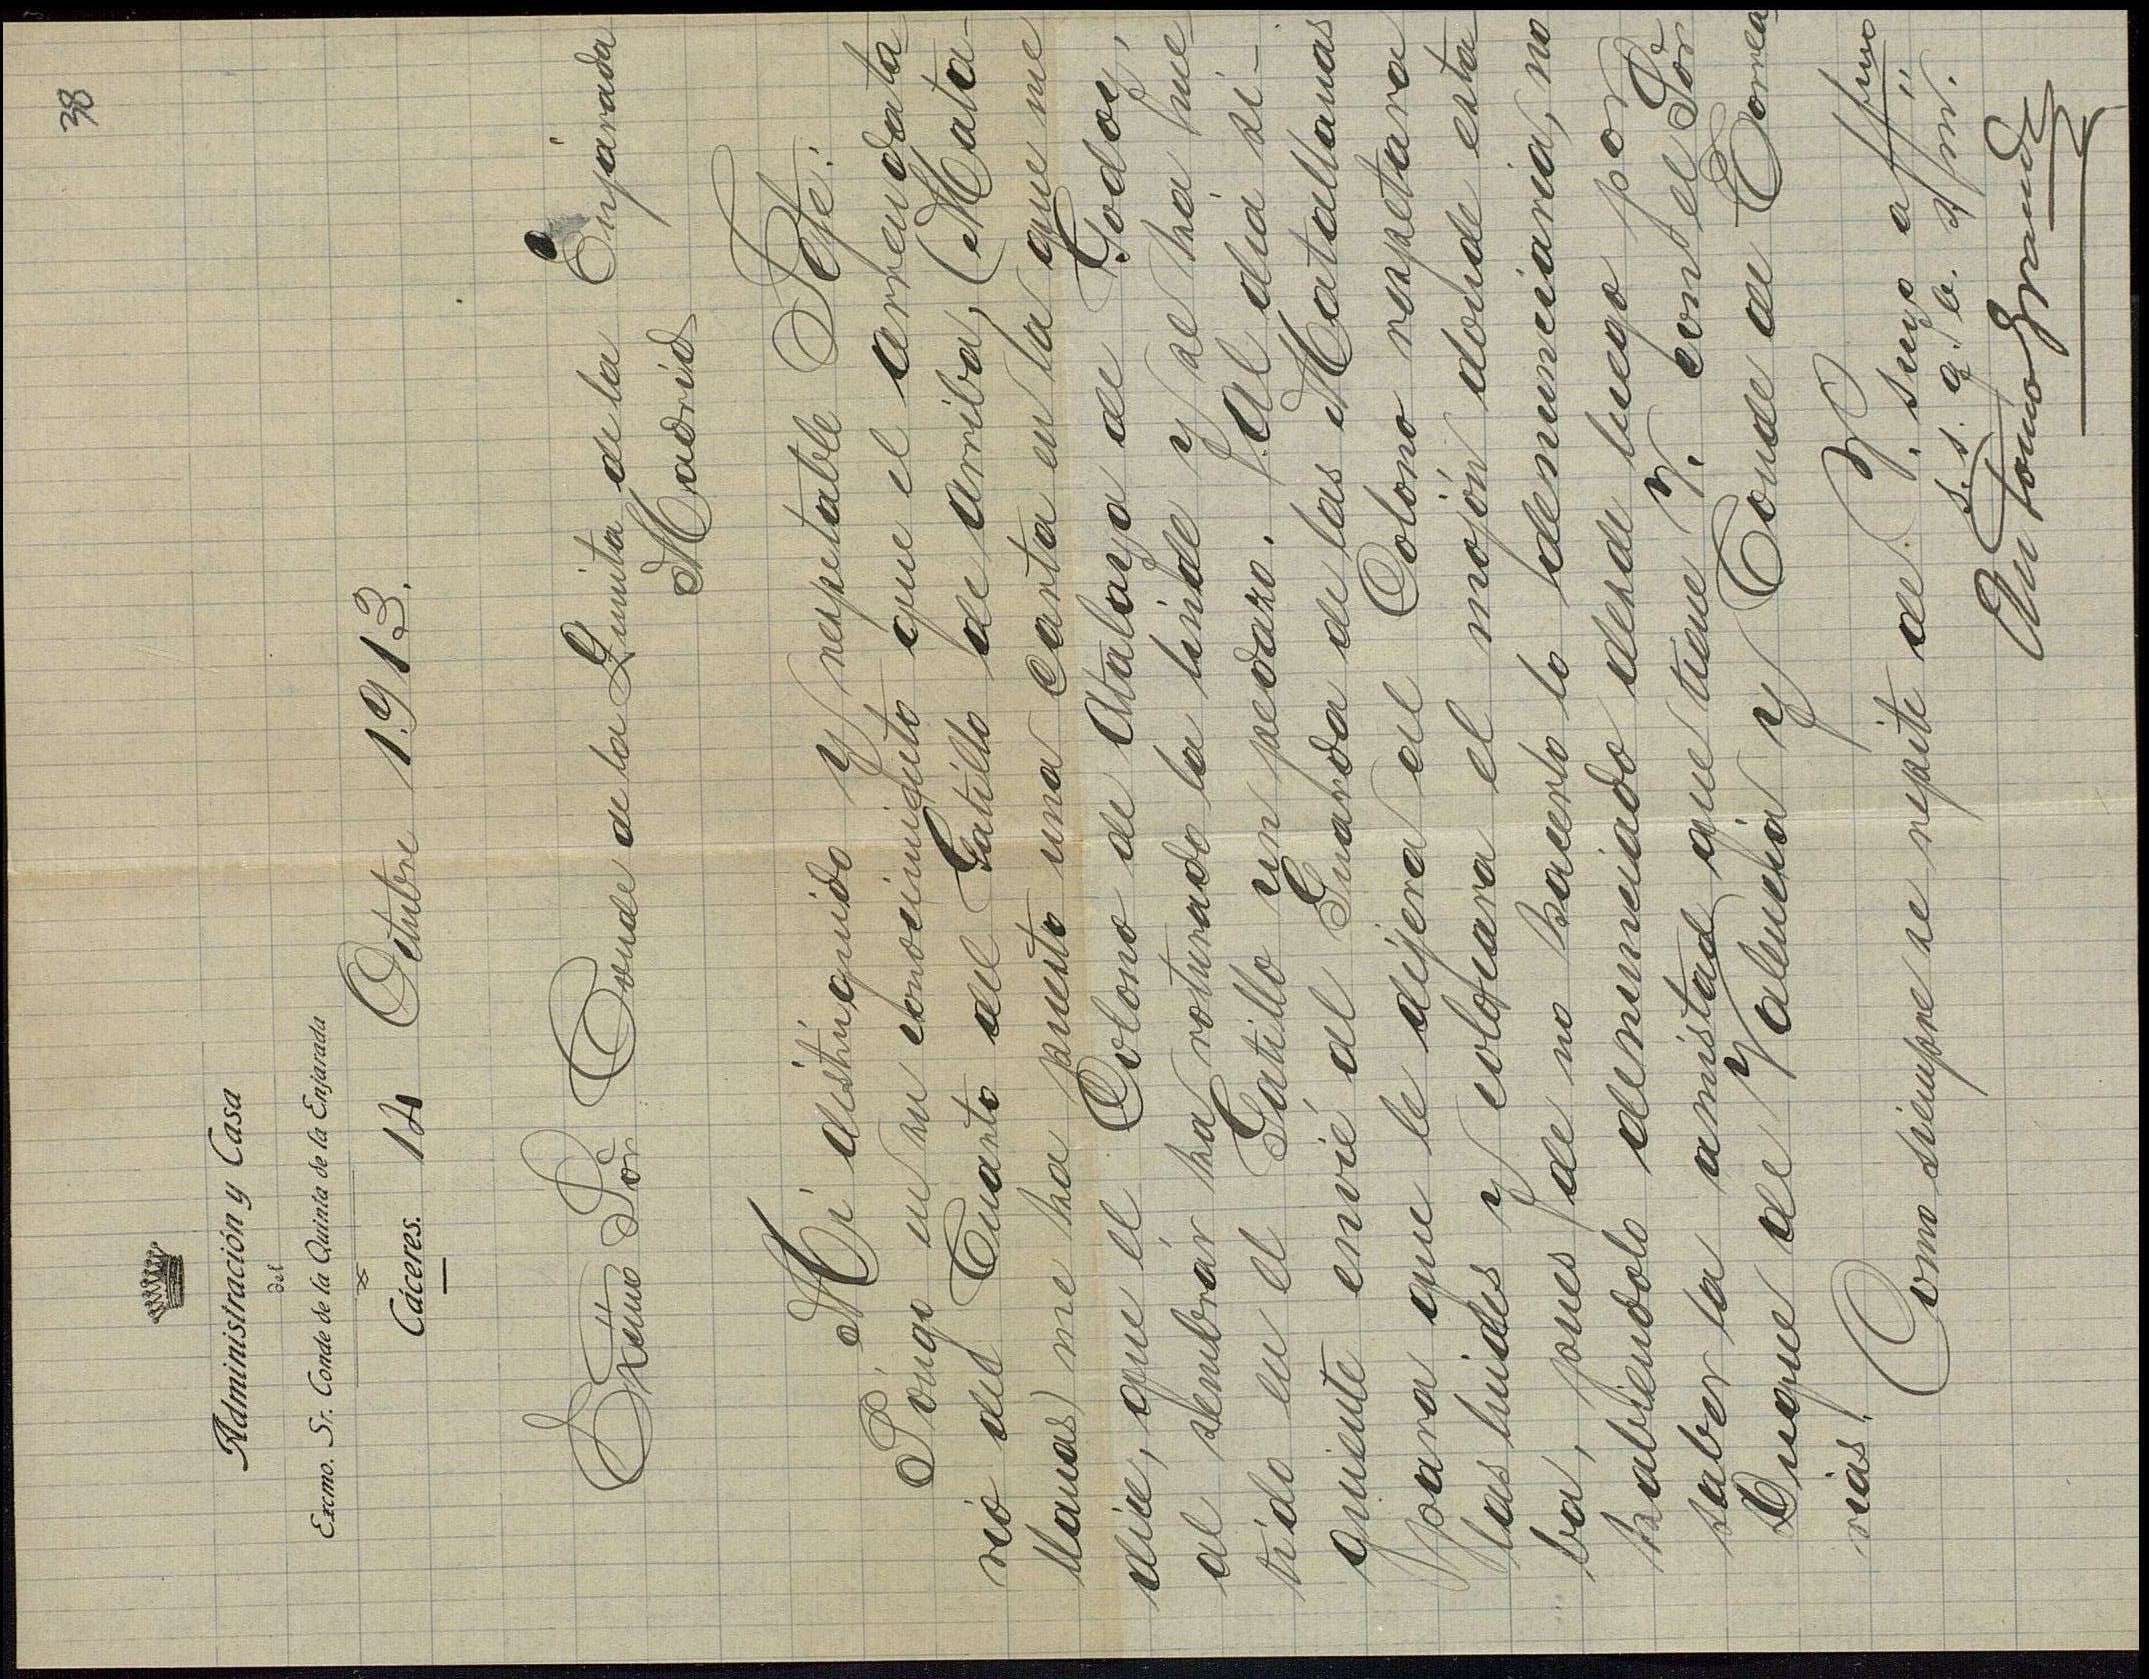 38
Administración y Casa
del
Excmo. Sr. Conde de la Quinta de la Enjarada
Cáceres. 14 Octubre 1913.
Exmo Sor Conde de la Quinta de la Enjarada
Madrid
Mi distinguido y respetable Jefe:
Póngo en su conocimiento que el arrendata
rio del Cuarto del Gatillo de arriba, (Mata-
llanas) me ha puesto una carta en la que me
dice, que el Colono de Atalaya de Godoy,
al sembrár ha roturado la linde y se há me-
tido en el Gatillo un pedazo. Al dia si-
guiente envié al Guarda de las Matallanas
para que le dijera al Colono respetara
las lindes y colocara el mojón donde esta
ba, pues de no hacerlo lo denunciaria, no
habiendolo denunciado desde luego por
saber la amistad que tiene V. con el Sor
Duque de Valencia y Conde de Torrea
rias.
Como siempre se repite de V. suyo affmo
s. s. q. b. s/m.
Antonio Grande